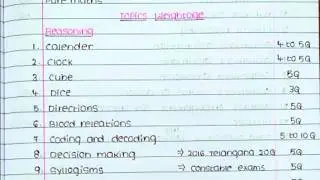 Pure maths
Topics Weightage
Reasoning
1. Calender 4 to 5Q
2. Clock 4 to 5Q
3. Cube 5Q
4. Dice 3Q
5. Directions 5Q
6. Blood releations 5Q
7 Coding and decoding 5 to 10Q
8 Decision making → 2016 Telangana 20Q 5Q
9. Syllogisms → constable exams 5Q